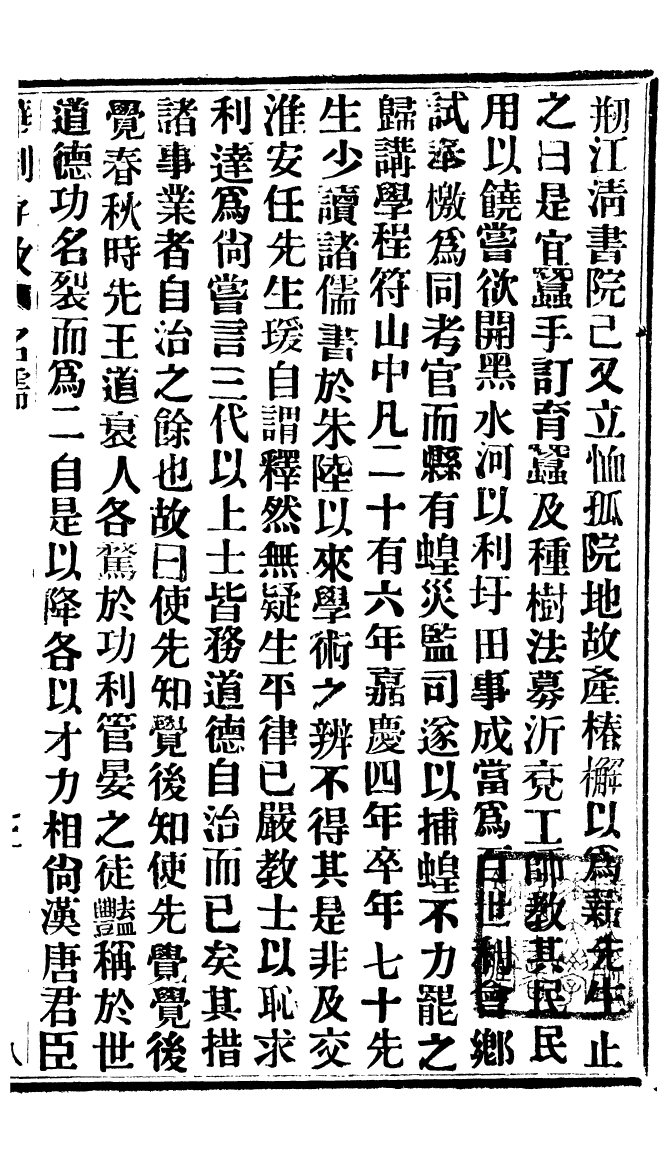 剏江清書院已又立恤孤院地故產樁檞以爲薪先生止
之曰是宜蠶手訂育蠶及種樹法募沂兗工師教其民民
用以饒嘗欲開黑水河以利圩田事成當爲百世利會鄉
試奉檄爲同考官而縣有蝗災監司遂以捕蝗不力罷之
歸講學程符山中凡二十有六年嘉慶四年卒年七十先
生少讀諸儒書於朱陸以來學術之辨不得其是非及交
淮安任先生瑗自謂釋然無疑生平律已嚴教士以恥求
利達爲尙嘗言三代以上士皆務道德自治而已矣其措
諸事業者自治之餘也故曰使先知覺後知使先覺覺後
覺春秋時先王道衰人各騖於功利管晏之徒豔稱於世
道德功名裂而爲二自是以降各以才力相尙漢唐君臣